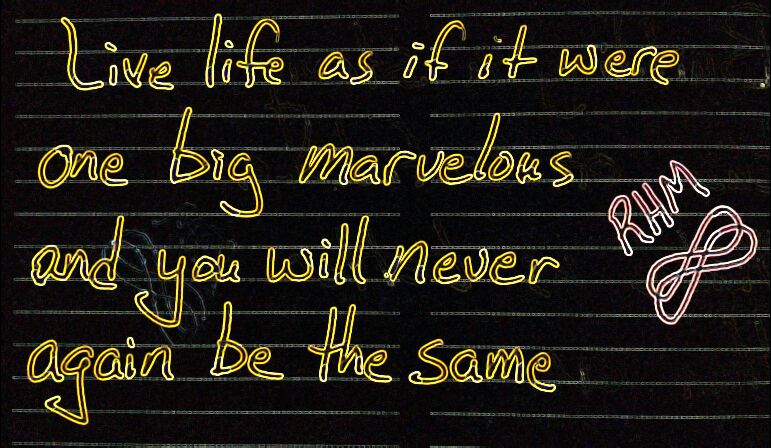 Live life as if it were
one big marvelous
and you will never
again be the same
RHM